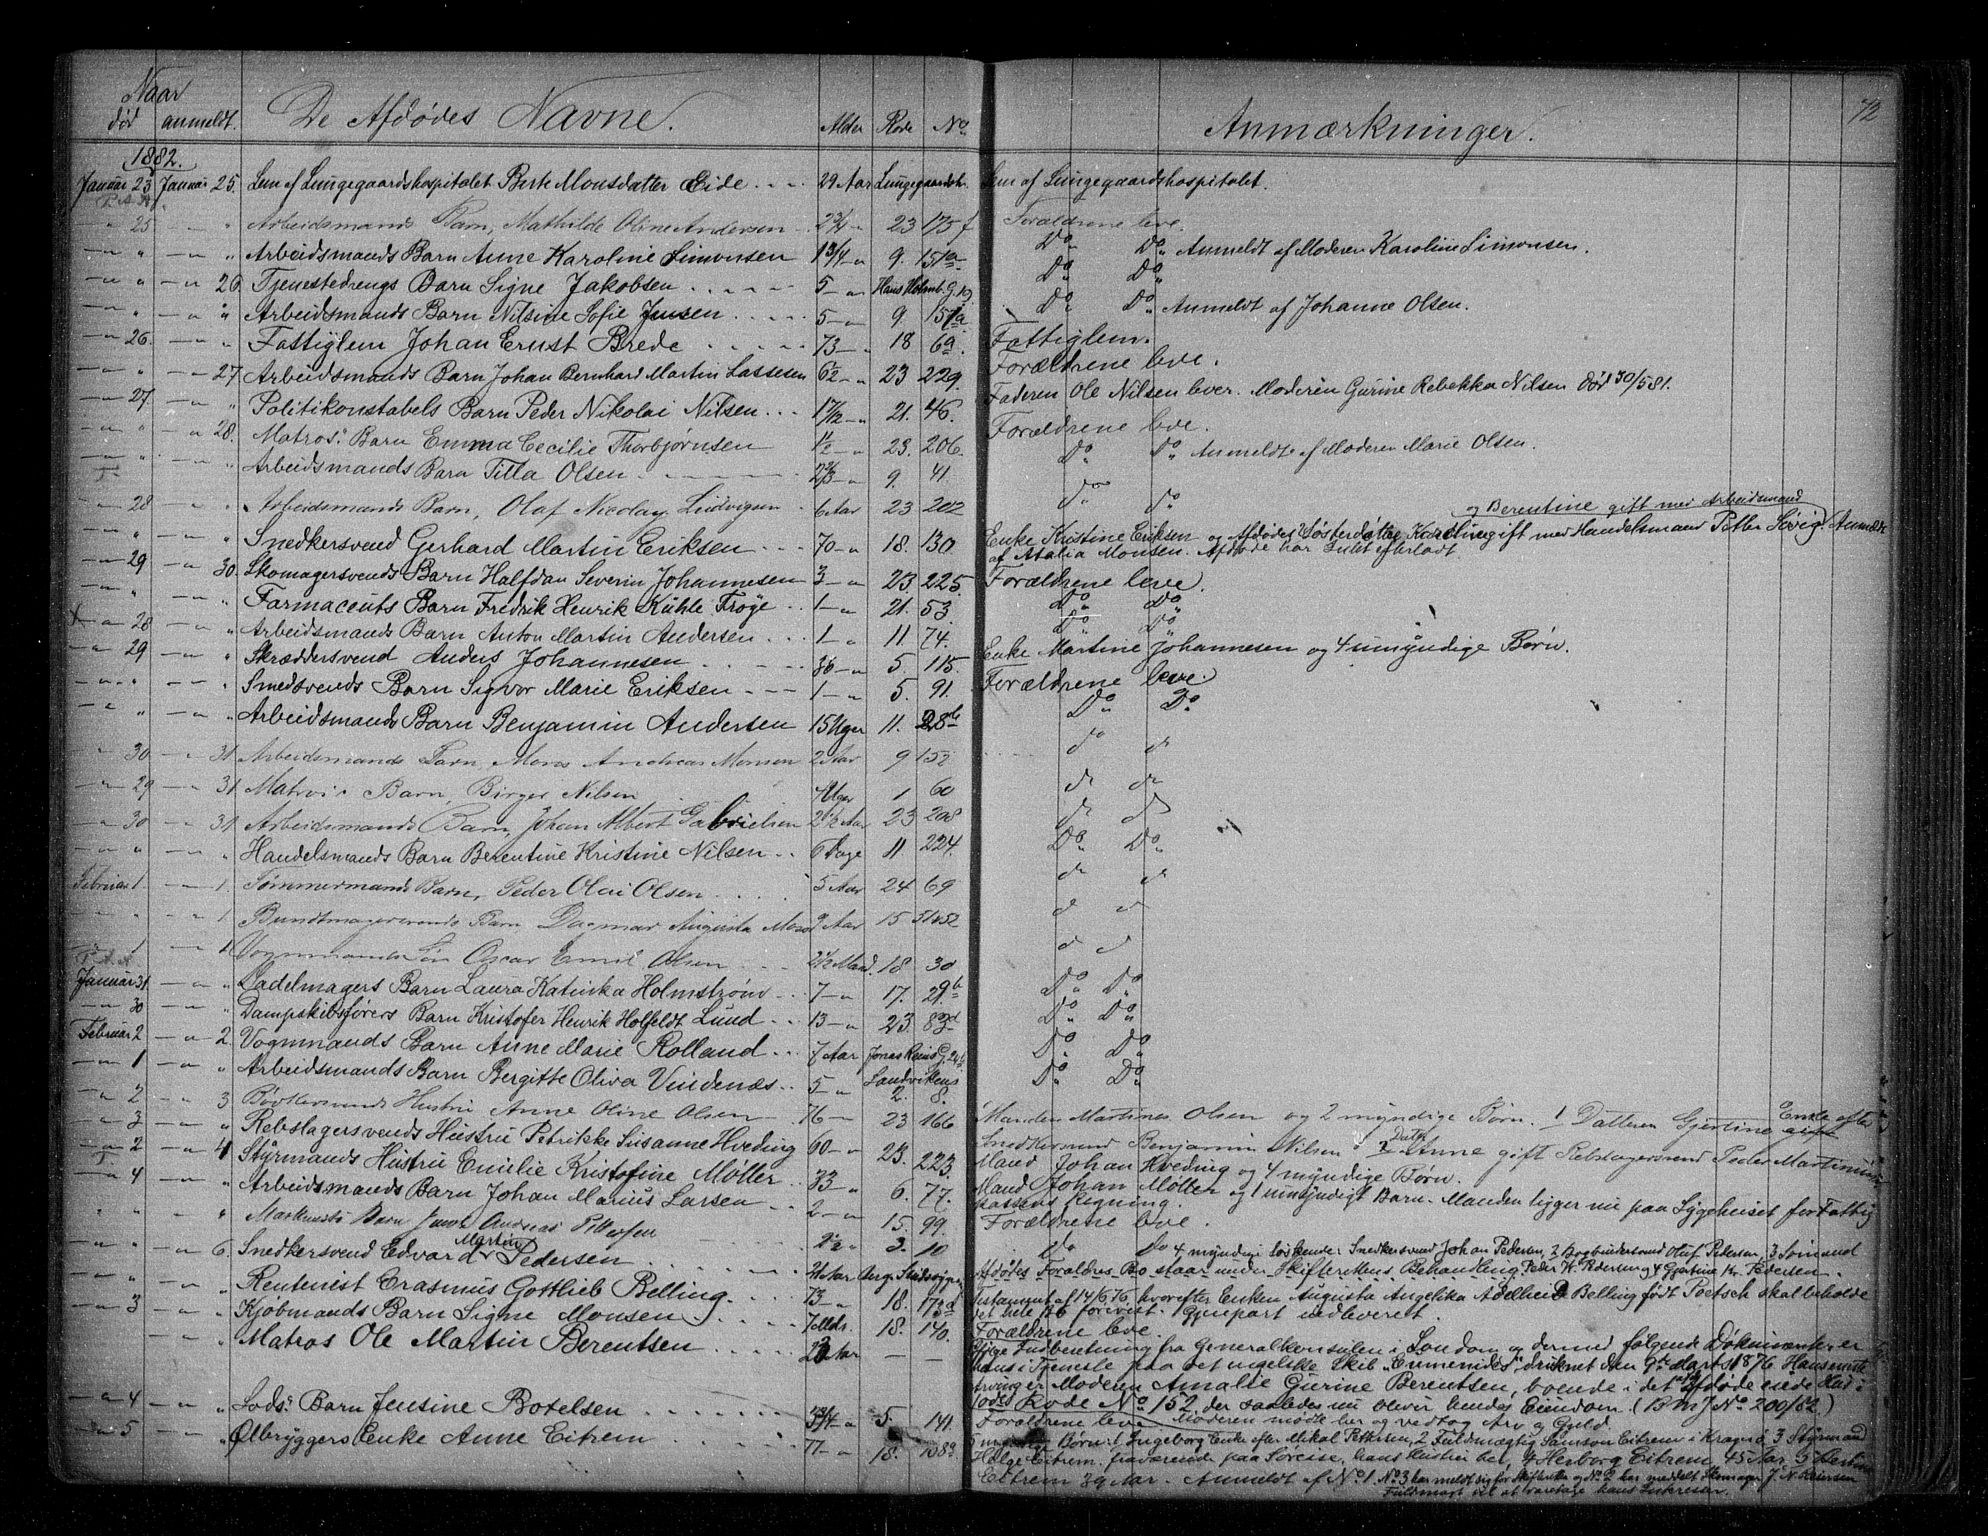 72
Naar
død anmeldt. De Afdødes Navne. Alder Rode No Anmærkninger.
1882.
Januar 23 Januar 25. Lem af Lungegaardshospitalet Berte Monsdatter Eide 29 Aar Lungegaardsh. Lem af Lungegaardshospitalet.
" 25 " Arbeidsmands Barn, Mathilde Oline Andersen 2 3/4 " 23 175 f Forældrene leve.
" " Arbeidsmands Barn Anne Karoline Simonsen 1 3/4 " 9. 151a Do Do Anmeldt af Moderen Karoline Simonsen.
" " 26. Tjenestedrengs Barn Signe Jakobsen 5 " Hans Holmb. G. 19 Do Do
" " Arbeidsmands Barn Nilsine Sofie Jensen 5 " 9. 151a Do Do Anmeldt af Johanne Olsen.
" 26. " Fattiglem Johan Ernst Brede 73 " 18 69. Fattiglem.
" " 27. Arbeidsmands Barn Johan Bernhard Martin Lassesen 6 1/2 " 23 229. Forældrene leve.
" 27. " Politikonstabels Barn Peder Nikolai Nilsen 1 7/12 " 21. 46. Faderen Ole Nilsen lever. Moderen Gurine Rebekka Nilsen død 30/5 81.
" " 28. Matros' Barn Emma Cecilie Thorbjørnsen 1 1/2 " 23. 206. Forældrene leve.
" " Arbeidsmands Barn Titla Olsen 2 2/3 " 9. 41 Do Do Anmeldt af Moderen Marie Olsen.
" 28 " Arbeidsmands Barn, Olaf Nicolay Ludvigsen 6 Aar 23 202 do do
og Berentine gift med Arbeidsmand
" " Snedkersvend Gerhard Martin Eriksen 70 " 18. 130 Enke Kristine Eriksen og Afdødes Søsterdatter Karoline gift med Handelsmand Petter Søvig. Anmeldt
af Atalia Monsen. Afdøde har Intet efterladt.
" 29 " 30. Skomagersvends Barn Halfdan Severin Johannesen 3 " 23. 225. Forældrene leve.
" " Farmaceuts Barn Fredrik Henrik Kühle Trøye 1 " 21. 53. Do Do
X " 28 " Arbeidsmands Barn Anton Martin Andersen 1 " 11 74. Do Do
" 29 " Skræddersvend Anders Johannesen 36 " 5. 115. Enke Martine Johannesen og 4 umyndige Børn.
" " Smedsvends Barn Sigvor Marie Eriksen 1 " 5. 91. Forældrene leve.
" " Arbeidsmands Barn Benjamin Andersen 15 Uger 11. 28b Do Do
" 30 " 31 Arbeidsmands Barn, Mons Andreas Monsen 2 Aar 9 152 do do
" 29 " 31. Matros' Barn, Birger Nilsen Uger 1 60 do do
" 30 " 31 Arbeidsmands Barn, Johan Albert Gabrielsen 2 1/2 Aar 23 208 do do
" " Handelsmands Barn Berentine Kristine Nilsen 6 Dage 11 224. Do Do
Februar 1 " 1. Tømmermands Barn, Peder Olai Olsen 5 Aar 24 69 do do
" " 1 Bundtmagersvends Barn Dagmar Augusta 2 Aar 15 51 & 52 do do
" 1 " 1 Vognmands Søn Oscar Emil Olsen 2 1/2 Maand. 18 30 do do
Januar 31 " Sadelmagers Barn Laura Katinka Holmstrøm 7 " 17. 29b Do Do
" 30 " Dampskibsførers Barn Kristofer Henrik Holfeldt Lund 13 " 23. 83d Do Do
Februar 2 " 2. Vognmands Barn Anne Marie Rolland 7 Aar Jonas Reins G. 24 Do Do
" 1 " Arbeidsmands Barn Bergitte Oliva Vindenæs 5 " Sandvikens 2. 8. Do Do
" 2 " 3 Bødkersvends Hustru Anne Oline Olsen 76 " 23 166 Manden Martines Olsen og 2 myndige Børn. 1 Datteren Gjertine Enke efter
Snedkersvend Benjamin Nilsen 2 Datt. Anne gift Rebslagersvend Peder Martinus
" 3 " Rebslagersvends Hustru Petrikke Susanne Hveding 60 " 23. 223. Mand Johan Hveding og 4 myndige Børn.
" 2 " 4 Styrmands Hustru Emilie Kristofine Møller 33 " 6. 77. Mand Johan Møller og 1 umyndigt Barn. Manden ligger nu paa Sygehuset for Fattig
kassens Regning.
" 4 " Arbeidsmands Barn Johan Marius Larsen 2 " 15. 99. Forældrene leve.
" " Barn Andreas Pettersen 2 1/2 " 3. 10 do
" " 6. Snedkersvend Edvard Martin Pedersen 21 Aar do 4 myndige Søskende: Snedkersvend Johan Pedersen, 2 Bogbindersvend Oluf Pedersen, 3 Sømand
Peder W. Pedersen og 4 Gjertine Pedersen. Afdødes Forældres Bo staar under Skifterettens Behandling.
" " Rentenist Erasmus Gottlieb Belling 73 " 18. 173d Testament af 14/6 76, hvorefter Enken Augusta Angelika Adelheid Belling født Poetsch skal beholde
det hele Bo forevist. Gjenpart indleveret.
" 3 " Kjøbmands Barn Signe Monsen 7 Mdr. 18. 140. Forældrene leve.
" Matros Ole Martin Berentsen 23 Aar Ifølge Indberetning fra Generalkonsulen i London og dermed følgende Dokumenter er
hans i Tjeneste paa det engelske Skib "Eumenides" druknet den 9de Marts 1876. Hans eneste
Arving er Moderen Amalie Gurine Berentsen, boende i det af Afdøde eiede Hus i
7de Rode No 152 der saaledes nu bliver hendes Eiendom. (B. m J No 200/82.)
Moderen mødte her og vedtog Arv og Gjæld.
" 4 " Lods' Barn Jensine Botelsen 3 3/4 " 5. 141. Forældrene leve.
" 5 " Ølbryggers Enke Anne Eitrem 77 " 18. 138a 5 Børn: 1 Ingeborg Enke efter Mikal Pettersen, 2 Fuldmægtig Samson Eitrem i Kragerø, 3 Styrmand
Helge Eitrem, fraværende paa Søreise, hans Hustru her, 4 Herborg Eitrem 45 Aar, 5 Martine
Eitrem 39 Aar. Anmeldt af No 1. No 3 har meldt sig for Skifteretten og No 2 har meddelt Skomager J. N. Reiersen
Fuldmagt til at varetage hans Interesser.